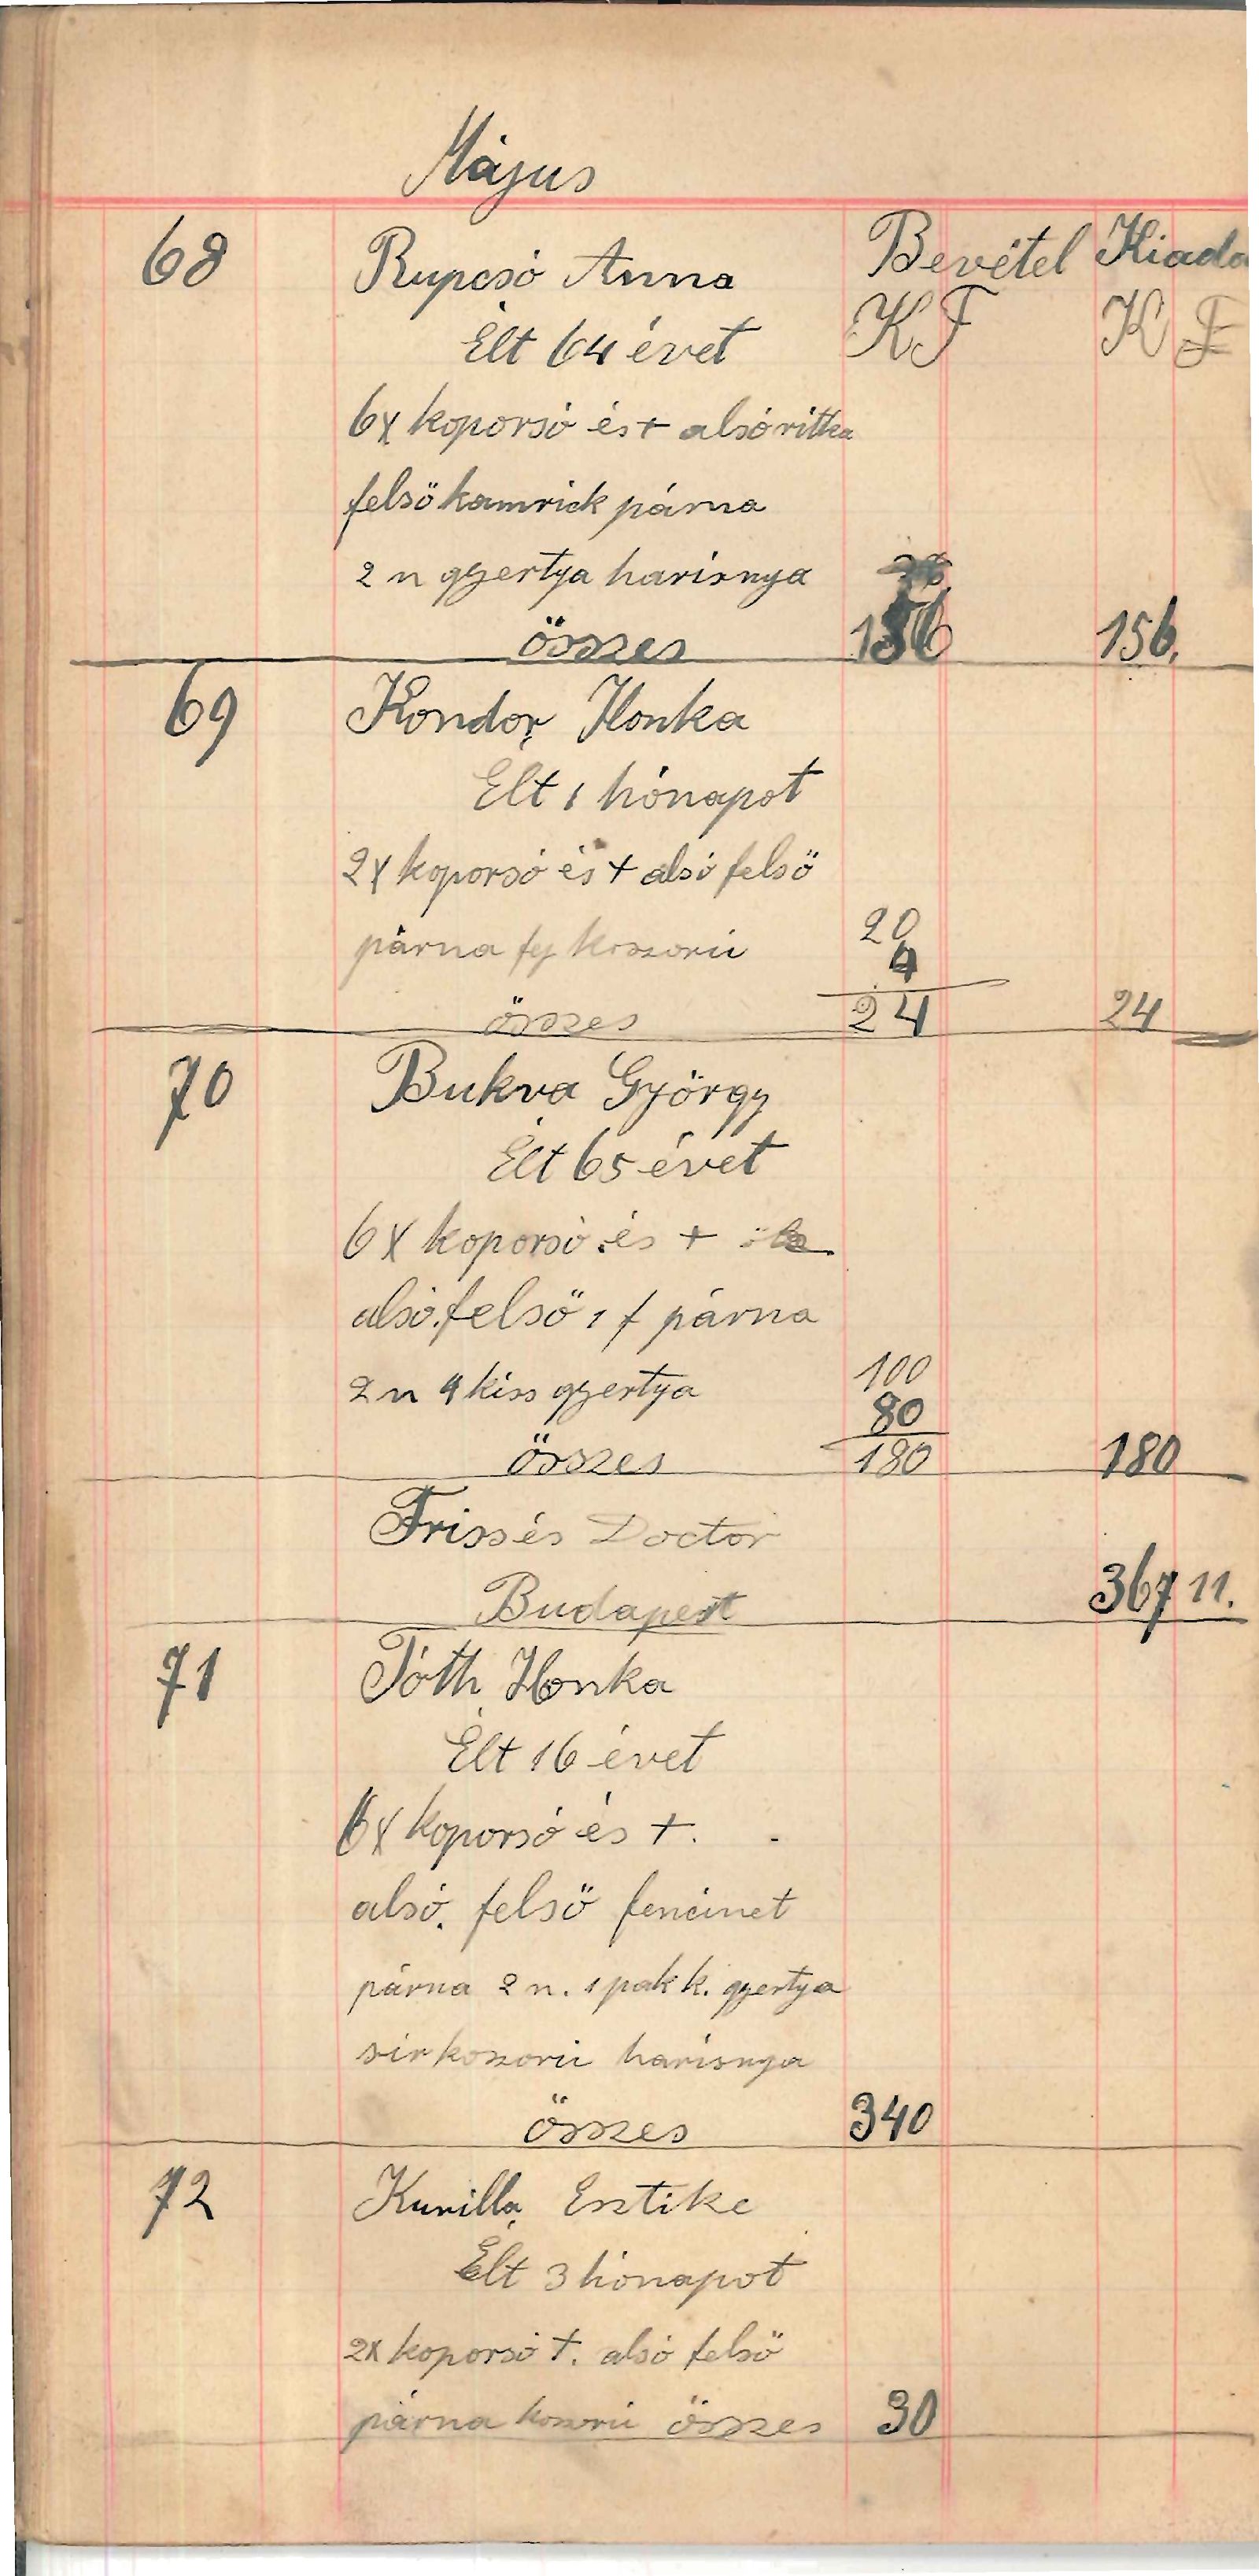 Május
68 Rupcsó Anna Bevétel Kiadá
Élt 64 évet K F K F
6x koporsó és + alsó ritka
felső kamrick párna
2 n gyertya harisnya
összes 156 156.
69 Kondor Ilonka
Élt 1 hónapot
2x koporsó és + alsó felső
párna fej koszorú 20
4
összes 24 24
70 Bukva György
Élt 65 évet
6x koporsó és +
alsó. felső 1 f párna
2 n 4 kiss gyertya 100
80
összes 180 180
Friss és Doctor
Budapest 367 11.
71 Tóth Ilonka
Élt 16 évet
6x koporsó és +.
alsó. felső
párna 2 n. 1 pak k. gyertya
sirkoszorú harisnya
összes 340
72 Kurilla Esztike
Élt 3 hónapot
2x koporsó +. alsó felső
párna koszorú összes 30